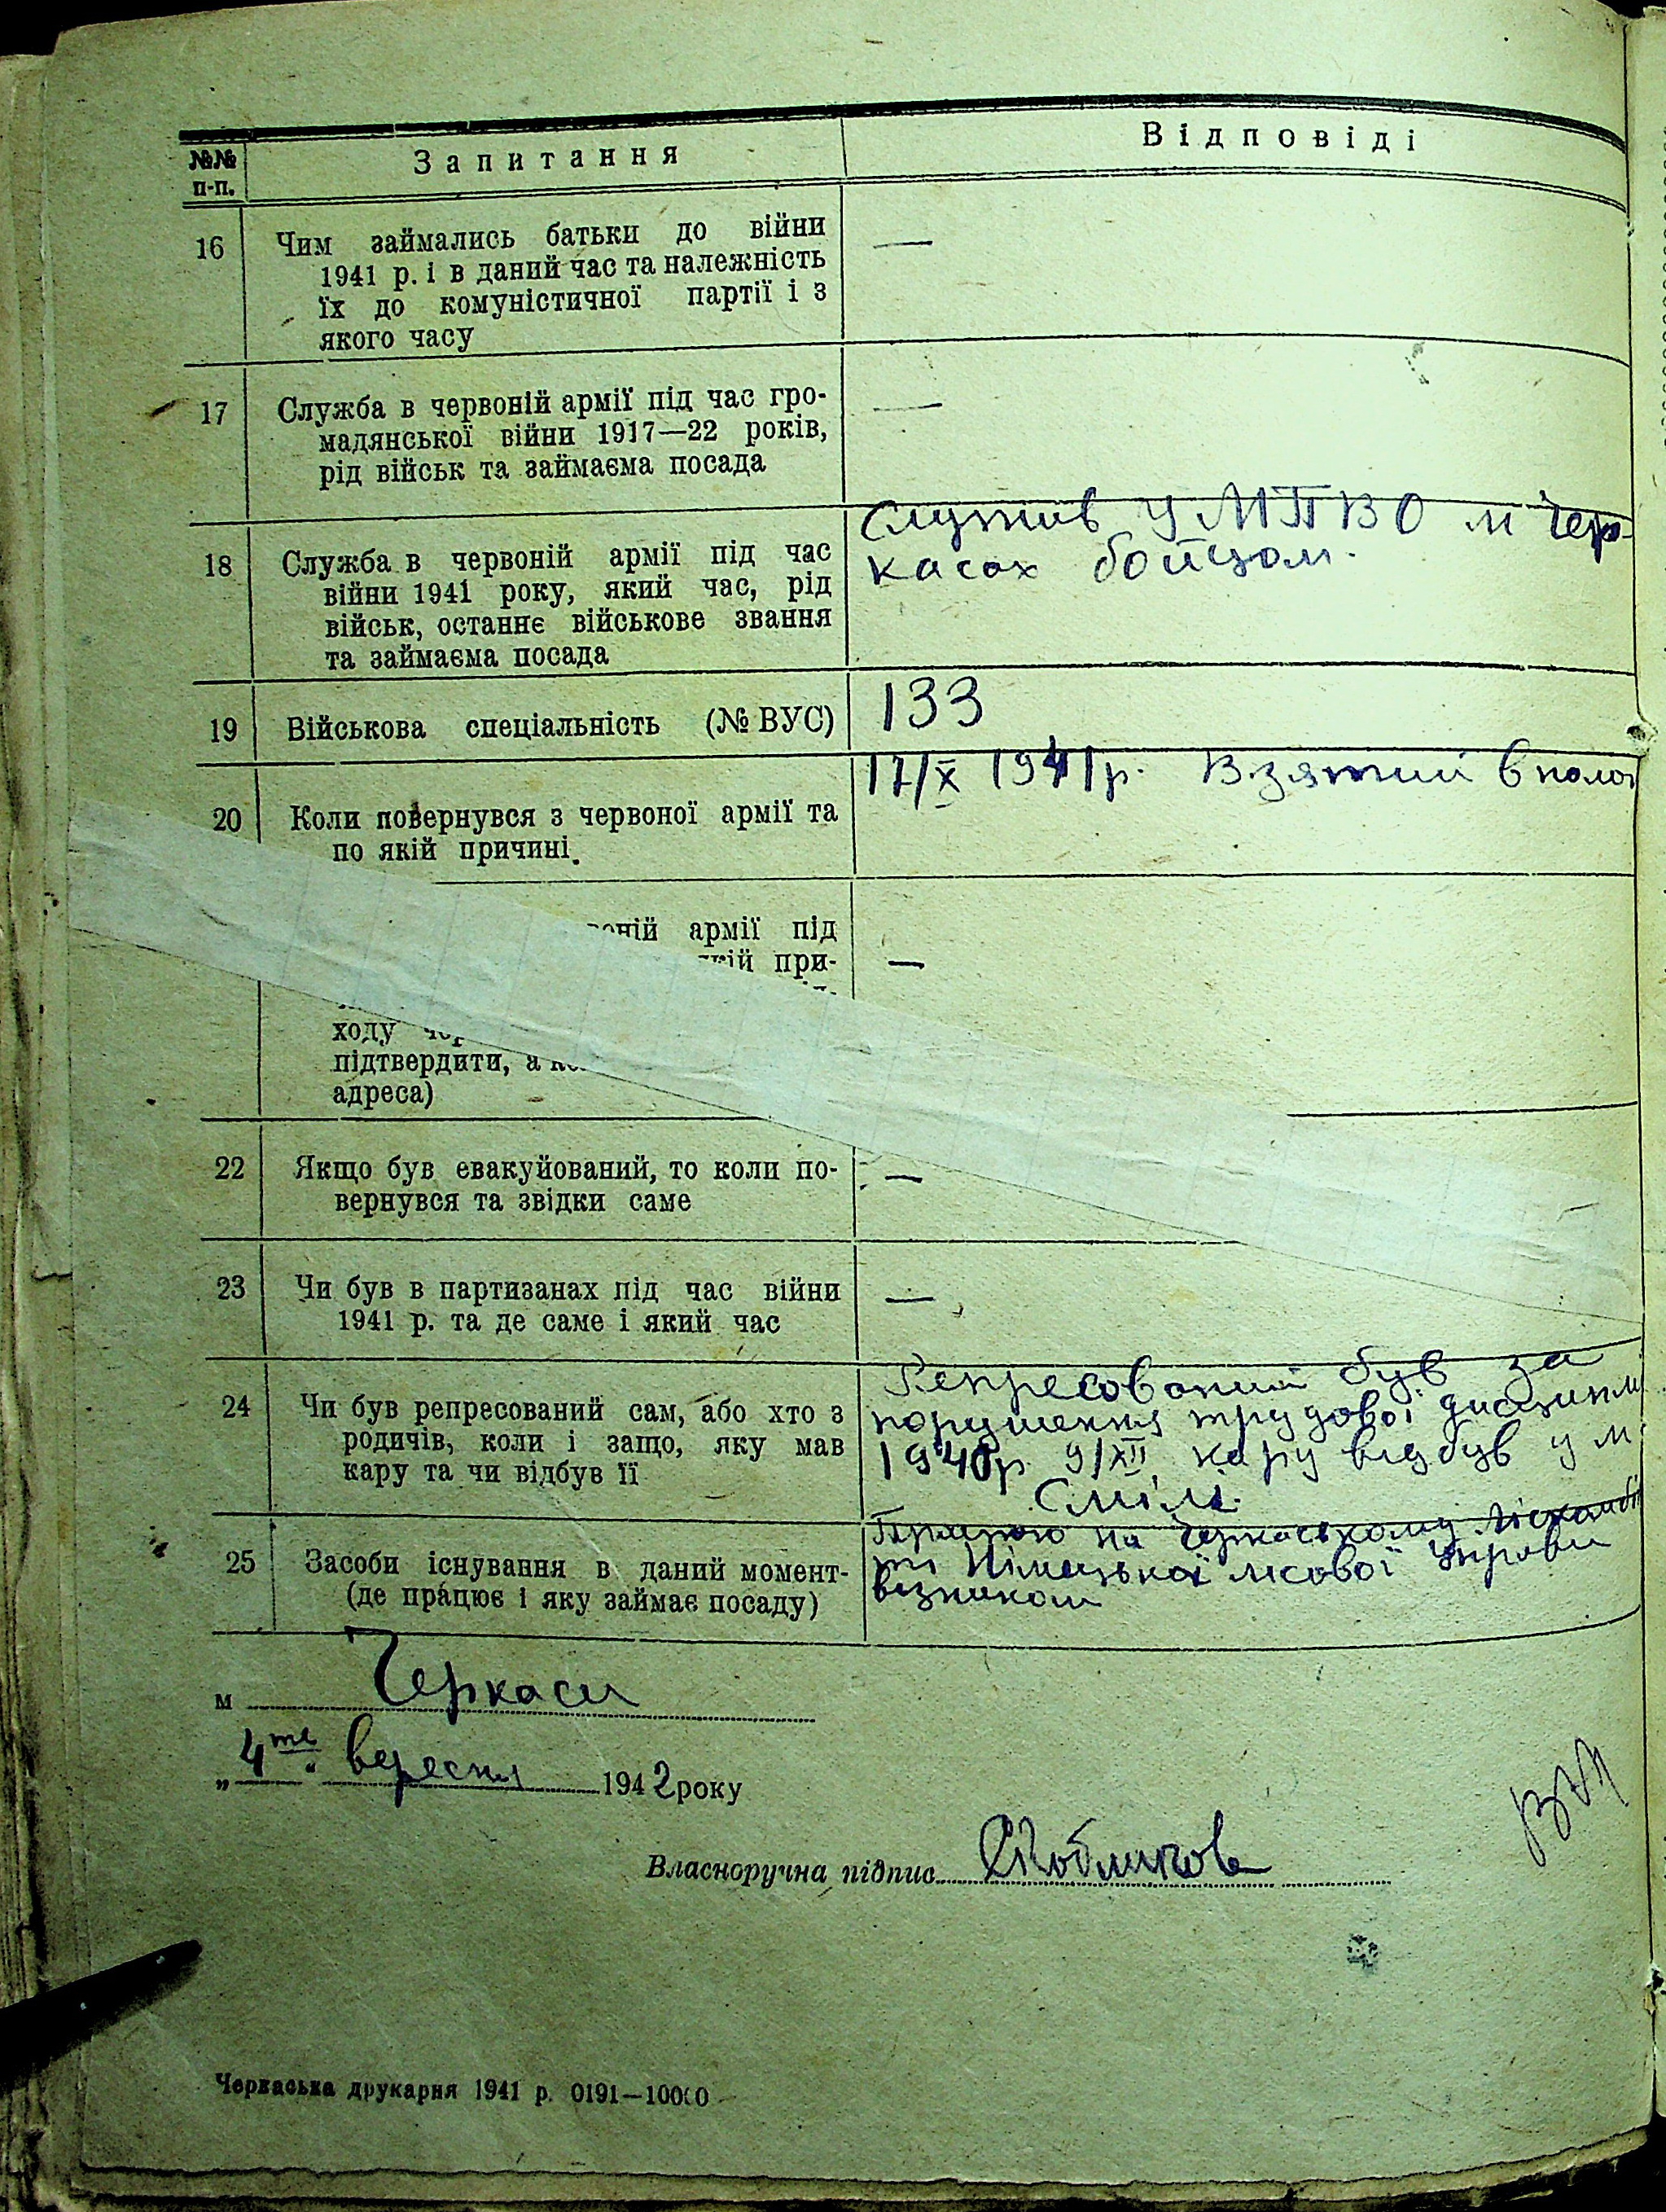 №№ п-п. Запитання Відповіді
16 Чим займались батьки до війни —
1941 р. і в даний час та належність
їх до комуністичної партії і з
якого часу
17 Служба в червоній армії під час гро- —
мадянської війни 1917—22 років,
рід військ та займаєма посада
18 Служба в червоній армії під час
війни 1941 року, який час, рід
військ, останнє військове звання
та займаєма посада
Служив у МПВО м Чер-
касах бойцом.
19 Військова спеціальність (№ ВУС) 133
20 Коли повернувся з червоної армії та
по якій причині.
17/X 1941р. Взятий в полон
армії під —
при-
ходу
підтвердити,
адреса)
22 Якщо був евакуйований, то коли по- —
вернувся та звідки саме
23 Чи був в партизанах під час війни —
1941 р. та де саме і який час
24 Чи був репресований сам, або хто з
родичів, коли і защо, яку мав
кару та чи відбув її
Репресований був за
порушення трудової дисципли
1940р 9/XII кару відбув у м.
Смілі.
25 Засоби існування в даний момент-
(де працює і яку займає посаду)
Працюю на Черкаському
Німецької лісової управи
візником
м Черкаси
„4те" вересня 1942 року
Власноручна підпис
Черкаська друкарня 1941 р. 0191—10000